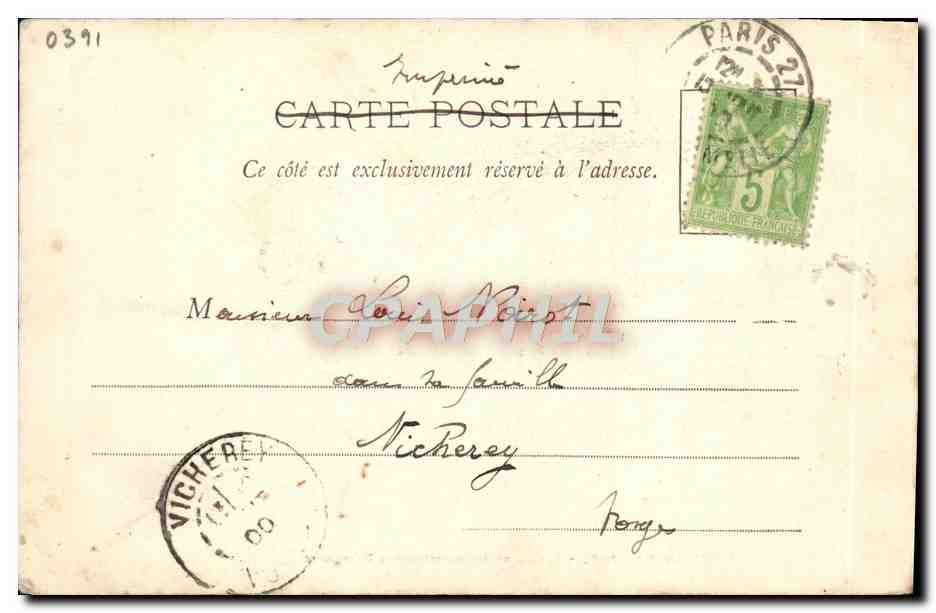 0391
PARIS 27
12M
Imprimé
CARTE POSTALE
Ce côté est exclusivement réservé à l'adresse.
5
REPUBLIQUE FRANÇAISE
Monsieur Louis Noirot
CPAPHIL
dans sa famille
Vicherey
Vosges
VICHEREY
00